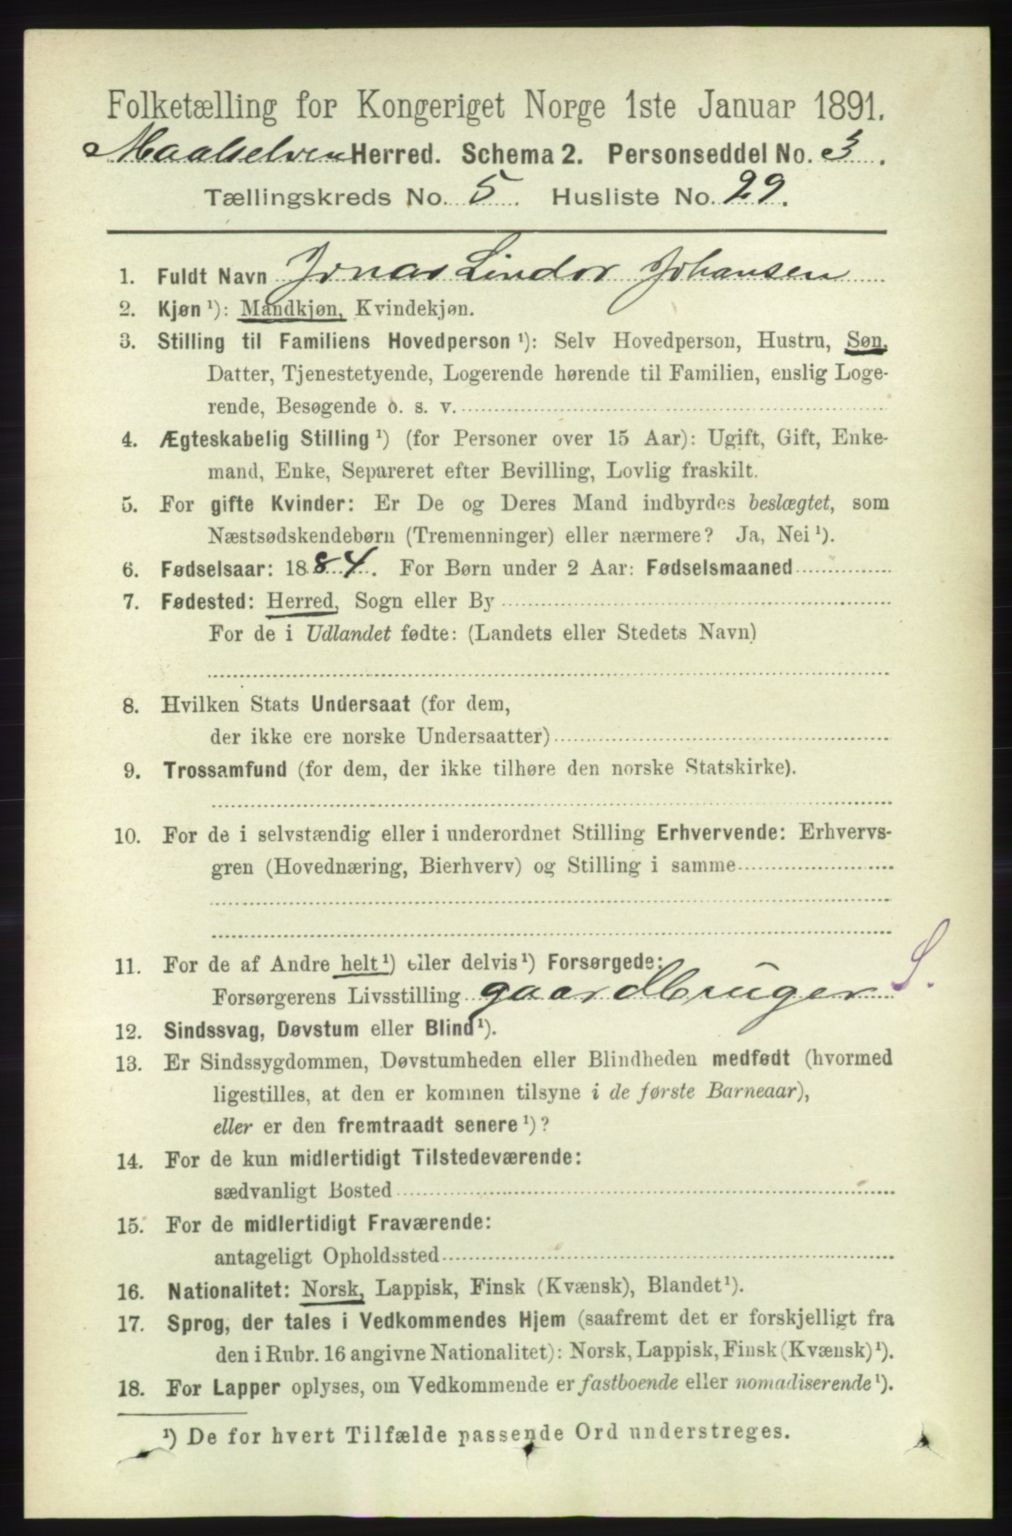 Folketælling for Kongeriget Norge 1ste Januar 1891.
Maalselven Herred. Schema 2. Personseddel No. 3.
Tællingskreds No. 5. Husliste No. 29.
1. Fuldt Navn Jonas Lindor Johansen
2. Kjøn ¹): Mandkjøn, Kvindekjøn.
3. Stilling til Familiens Hovedperson ¹): Selv Hovedperson, Hustru, Søn,
Datter, Tjenestetyende, Logerende hørende til Familien, enslig Loge-
rende, Besøgende o. s. v.
4. Ægteskabelig Stilling ¹) (for Personer over 15 Aar): Ugift, Gift, Enke-
mand, Enke, Separeret efter Bevilling, Lovlig fraskilt.
5. For gifte Kvinder: Er De og Deres Mand indbyrdes beslægtet, som
Næstsødskendebørn (Tremenninger) eller nærmere? Ja, Nei ¹).
6. Fødselsaar: 1884. For Børn under 2 Aar: Fødselsmaaned
7. Fødested: Herred, Sogn eller By
For de i Udlandet fødte: (Landets eller Stedets Navn)
8. Hvilken Stats Undersaat (for dem,
der ikke ere norske Undersaatter)
9. Trossamfund (for dem, der ikke tilhøre den norske Statskirke).
10. For de i selvstændig eller i underordnet Stilling Erhvervende: Erhvervs-
gren (Hovednæring, Bierhverv) og Stilling i samme
11. For de af Andre helt ¹) eller delvis ¹) Forsørgede:
Forsørgerens Livsstilling gaardbruger S.
12. Sindssvag, Døvstum eller Blind ¹).
13. Er Sindssygdommen, Døvstumheden eller Blindheden medfødt (hvormed
ligestilles, at den er kommen tilsyne i de første Barneaar),
eller er den fremtraadt senere ¹)?
14. For de kun midlertidigt Tilstedeværende:
sædvanligt Bosted
15. For de midlertidigt Fraværende:
antageligt Opholdssted
16. Nationalitet: Norsk, Lappisk, Finsk (Kvænsk), Blandet ¹).
17. Sprog, der tales i Vedkommendes Hjem (saafremt det er forskjelligt fra
den i Rubr. 16 angivne Nationalitet): Norsk, Lappisk, Finsk (Kvænsk) ¹).
18. For Lapper oplyses, om Vedkommende er fastboende eller nomadiserende ¹).
¹) De for hvert Tilfælde passende Ord understreges.